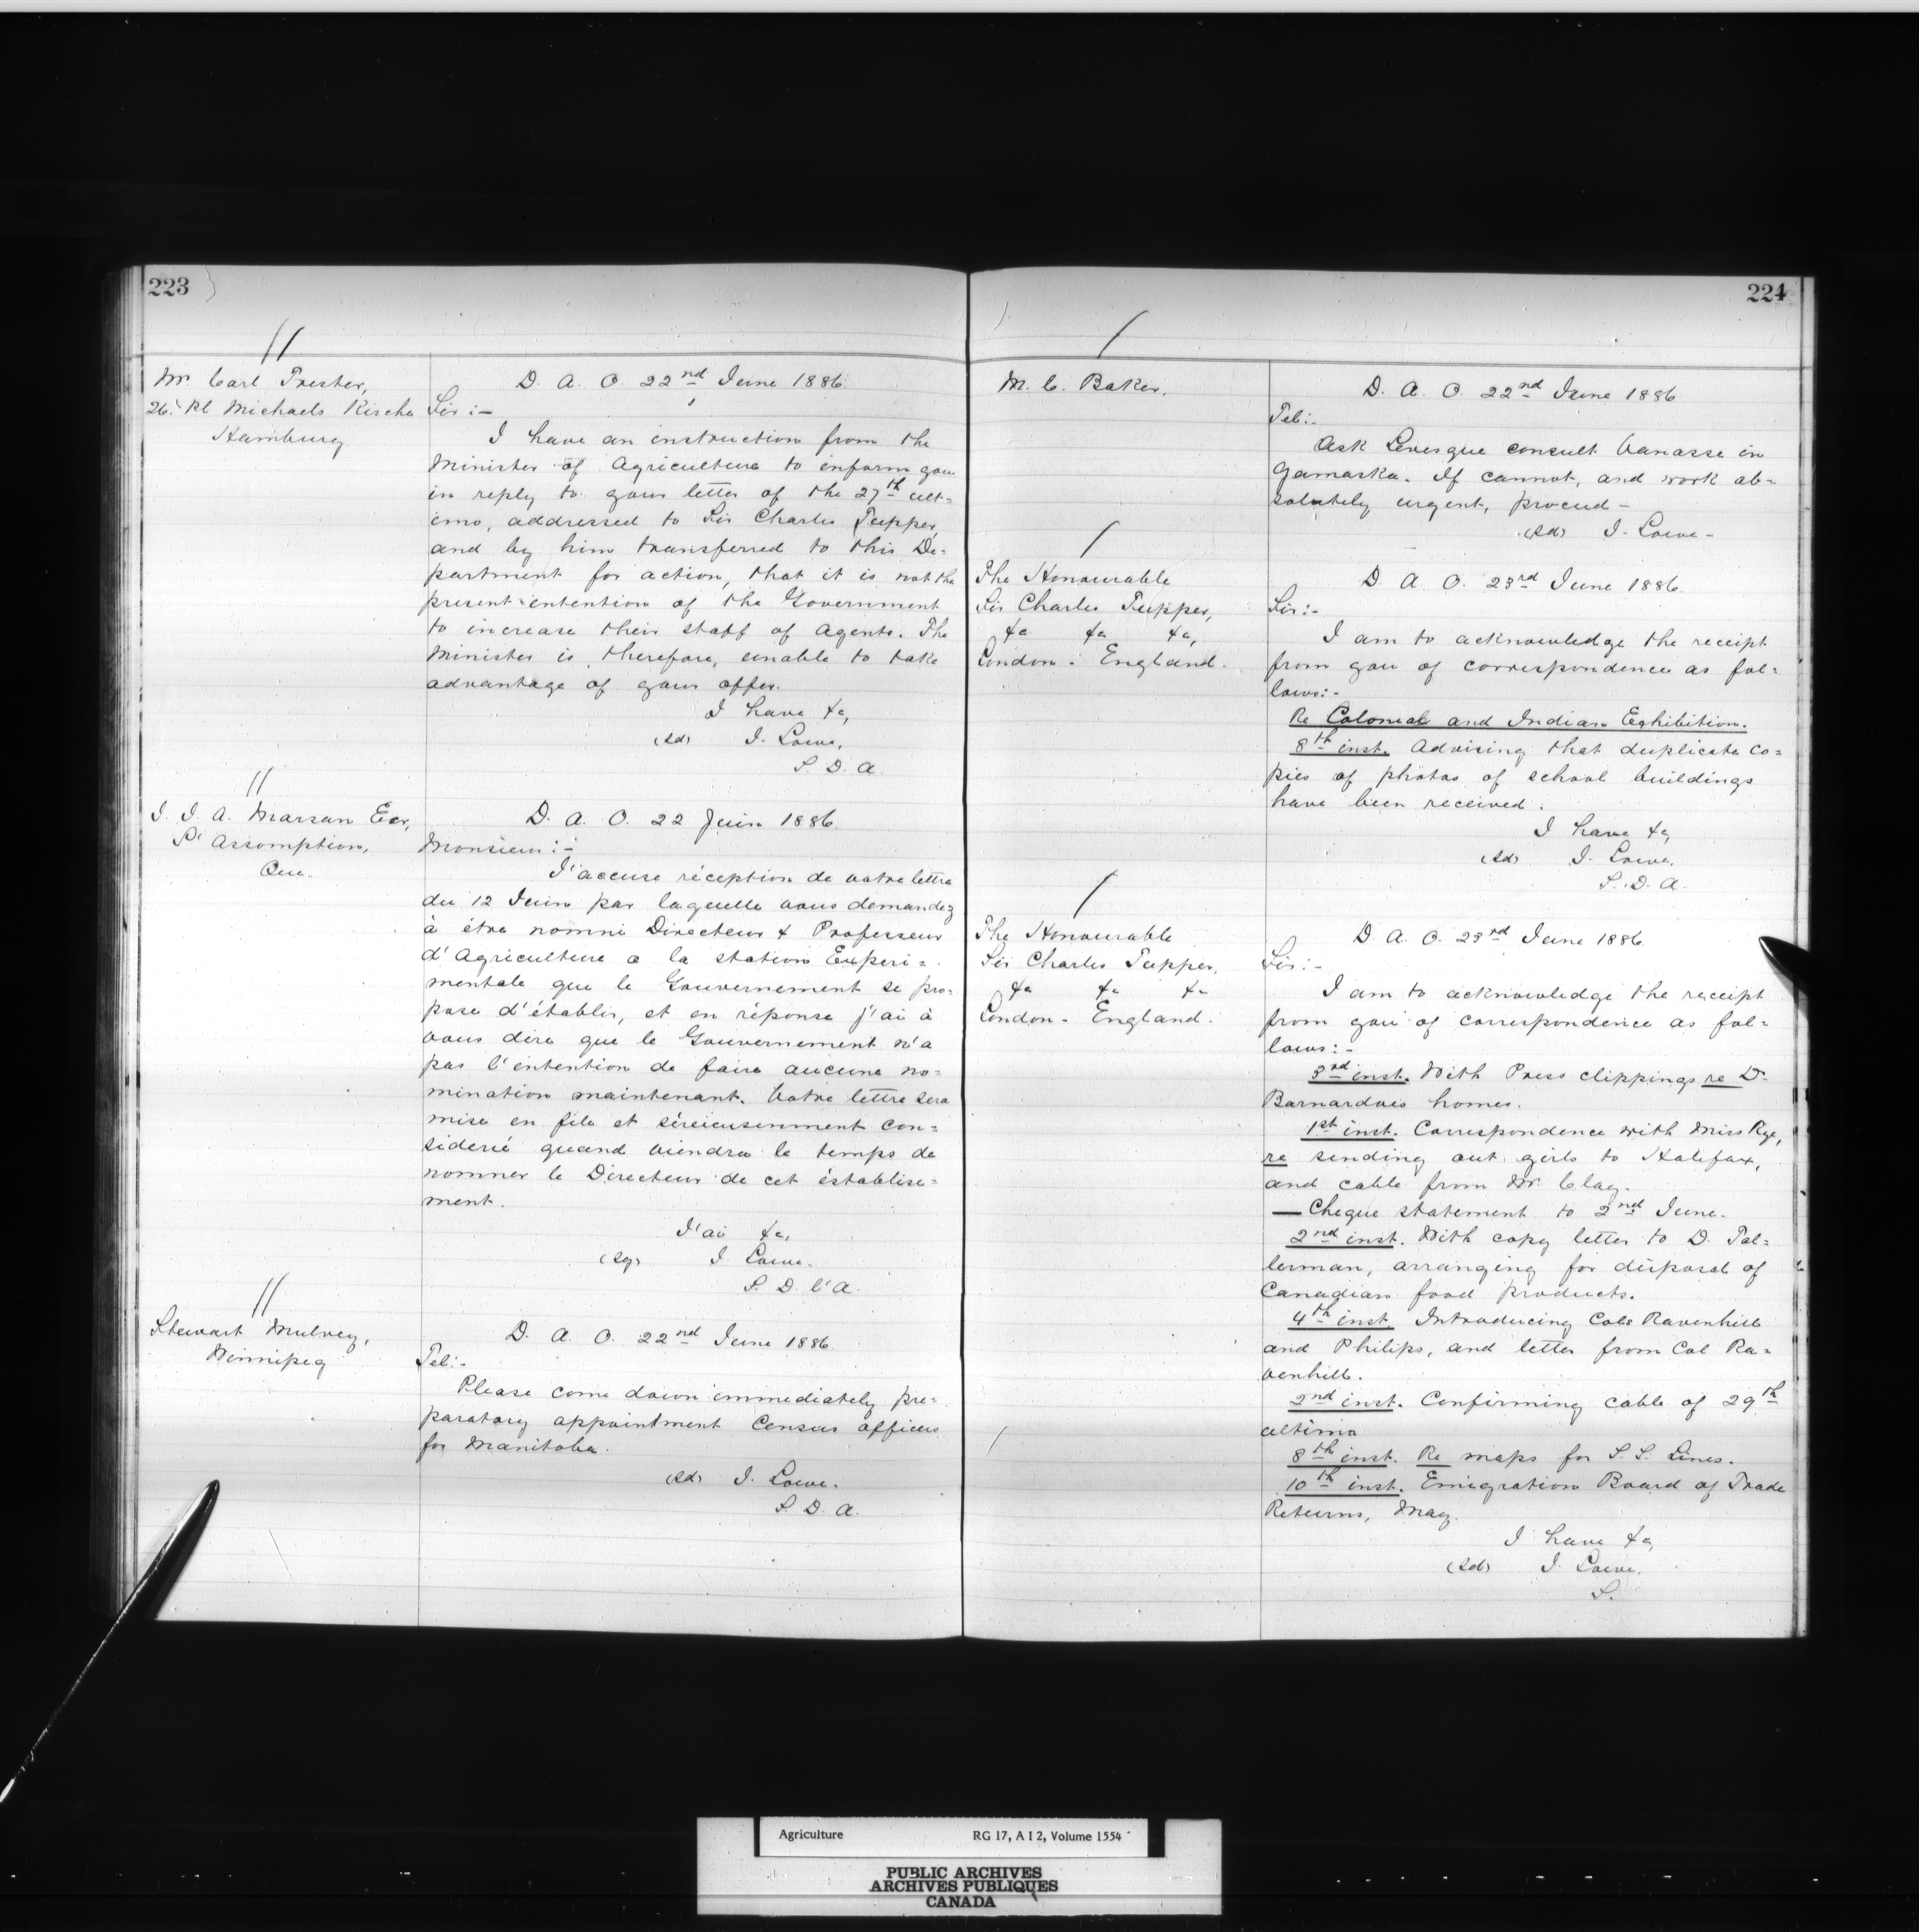 223
Mr. Carl Prester,
26. Kl Michaels Kirche
Hamburg
D. A. O. 22nd June 1886.
Sir:-
I have an instruction from the
Minister of Agriculture to inform you
in reply to your letter of the 27th ult=
imo, addressed to Sir Charles Tupper,
and by him transferred to this De=
partment for action, that it is not the
present intention of the Government
to increase their staff of Agents. The
Minister is, therefore, unable to take
advantage of your offer.
I have &c,
(Sd) J. Lowe,
S. D. A.
J. J. A. Marsan Ecr,
L'Assomption,
Que.
D. A. O. 22 Juin 1886.
Monsieur:-
J'accuse réception de votre lettre
du 12 Juin par laquelle vous demandez
à être nommé Directeur & Professeur
d'Agriculture a la station Experi=
mentale que le Gouvernement se pro=
pose d'établir, et en réponse j'ai à
vous dire que le Gouvernement n'a
pas l'intention de faire aucune no=
mination maintenant. Votre lettre sera
mise en file et séreieusement con=
sideré quand viendra le temps de
nommer le Directeur de cet établisse=
ment.
J'ai &c,
(Sg) J. Lowe.
S. D. l'A.
Stewart Mulvey,
Winnipeg
D. A. O. 22nd June 1886.
Tel:-
Please come down immediately pre=
paratory appointment Census officers
for Manitoba.
(Sd) J. Lowe.
S. D. A.
224
M. C. Baker.
D. A. O. 22nd June 1886
Tel:-
Ask Levesque consult Vanasse in
Yamaska. If cannot, and work ab=
solutely urgent, proceed-
(Sd) J. Lowe-
The Honourable
Sir Charles Tupper,
&c &c &c,
London - England.
D. A. O. 23rd June 1886.
Sir:-
I am to acknowledge the receipt
from you of correspondence as fol=
lows:-
Re Colonial and Indian Exhibition.
8th inst. Advising that duplicate co=
pies of photos of school buildings
have been received.
I have &c,
(Sd) J. Lowe,
S. D. A.
The Honourable
Sir Charles Tupper,
&c &c &c
London - England.
D. A. O. 23rd June 1886
Sir:-
I am to acknowledge the receipt
from you of correspondence as fol=
lows:-
3rd inst. With Press clippings re Dr
Barnardoes homes.
1st inst. Correspondence with Miss Rye,
re sending out girls to Halifax,
and cable from Mr. Clay.
— Cheque statement to 2nd June.
2nd inst. With copy letter to D. Tal=
lerman, arranging for disposal of
Canadian food products.
4th inst. Introducing Cols Ravenhill
and Philips, and letter from Col Ra=
venhill.
2nd inst. Confirming cable of 29th
ultimo
8th inst. Re maps for S. S. Lines.
10th inst. Emigration Board of Trade
Returns, May.
I have &c,
(Sd) J. Lowe,
S.
Agriculture RG 17, A I 2, Volume 1554
PUBLIC ARCHIVES
ARCHIVES PUBLIQUES
CANADA